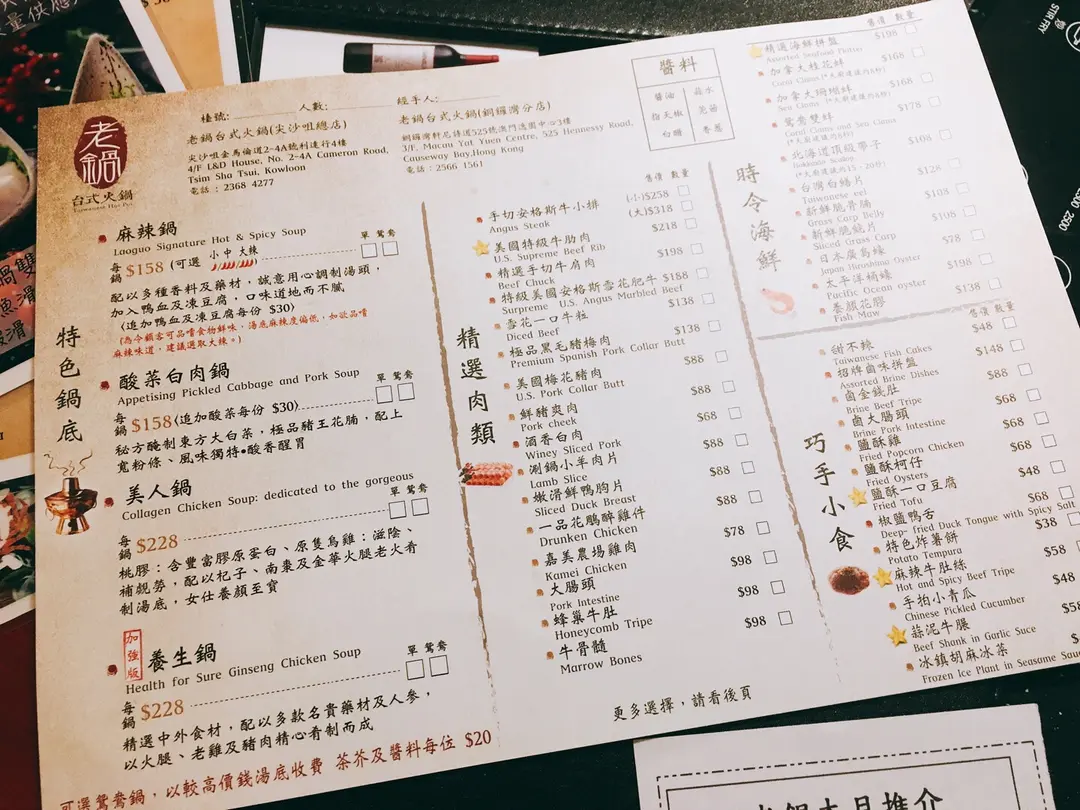 老鍋
台式火鍋
Taiwanese Hot Pot
檯號:
人數:
經手人:
老鍋台式火鍋(尖沙咀總店)
尖沙咀金馬倫道2-4A號利達行4樓
4/F L&D House, No. 2-4A Cameron Road,
Tsim Sha Tsui, Kowloon
電話 : 2368 4277
老鍋台式火鍋(銅鑼灣分店)
銅鑼灣軒尼詩道525號澳門逸園中心3樓
3/F, Macau Yat Yuen Centre, 525 Hennessy Road,
Causeway Bay, Hong Kong
電話 : 2566 1561
醬料
醬油
指天椒
白醋
蒜水
芫荽
麥蔥
特色鍋底
麻辣鍋
Laoguo Signature Hot & Spicy Soup
單 鴛鴦
每鍋 $158 (可選 小 中 大辣)
配以多種香料及藥材，誠意用心調制湯頭，
加入鴨血及凍豆腐，口味道地而不膩
(追加鴨血及凍豆腐每份 $30)
(為令顧客可品嚐食物鮮味，湯底麻辣度偏低，如欲品嚐
麻辣味道，建議選取大辣。)
酸菜白肉鍋
Appetising Pickled Cabbage and Pork Soup
單 鴛鴦
每鍋 $158 (追加酸菜每份 $30)
秘方醃制東方大白菜，極品豬王花腩，配上
寬粉條、風味獨特•酸香醒胃
美人鍋
Collagen Chicken Soup: dedicated to the gorgeous
單 鴛鴦
每鍋 $228
桃膠：含豐富膠原蛋白、原隻烏雞：滋陰、
補靚勞，配以杞子、南棗及金華火腿老火肴
制湯底，女仕養顏至寶
加強版
養生鍋
Health for Sure Ginseng Chicken Soup
單 鴛鴦
每鍋 $228
精選中外食材，配以多款名貴藥材及人參，
以火腿、老雞及豬肉精心肴制而成
可選鴛鴦鍋，以較高價錢湯底收費 茶芥及醬料每位 $20
精選肉類
售價 數量
手切安格斯牛小排 (小)$258
Angus Steak (大)$318
美國特級牛肋肉 $218
U.S. Supreme Beef Rib
精選手切牛肩肉 $198
Beef Chuck
特級美國安格斯雪花肥牛 $188
Surpreme U.S. Angus Marbled Beef
雪花一口牛粒 $138
Diced Beef
極品黑毛豬梅肉 $138
Premium Spanish Pork Collar Butt
美國梅花豬肉 $88
U.S. Pork Collar Butt
鮮豬爽肉 $88
Pork cheek
酒香白肉 $68
Winey Sliced Pork
涮鍋小羊肉片 $88
Lamb Slice
嫩滑鮮鴨胸片 $88
Sliced Duck Breast
一品花鵰醉雞件 $88
Drunken Chicken
嘉美農場雞肉 $78
Kamei Chicken
大腸頭 $98
Pork Intestine
蜂巢牛肚 $98
Honeycomb Tripe
牛骨髓 $98
Marrow Bones
更多選擇，請看後頁
時令海鮮
售價 數量
精選海鮮拼盤 $198
Assorted Seafood Platter
加拿大桂花蚌 $168
加拿大珊瑚蚌 $168
鴛鴦雙蚌 $178
Coral Clams and Sea Clams
北海道頂級帶子 $108
Hokkaido Scallop
台灣白鱔片 $128
Taiwanese eel
新鮮脆骨腩 $108
Grass Carp Belly
新鮮脆鯇片 $108
Sliced Grass Carp
日本廣島蠔 $78
Japan Hiroshima Oyster
太平洋桶蠔 $198
Pucific Ocean oyster
養顏花膠 $138
Fish Maw
巧手小食
售價 數量
甜不辣 $48
Taiwanese Fish Cakes
招牌鹵味拼盤 $148
Assorted Brine Dishes
鹵金錢肚 $88
Brine Beef Tripe
鹵大腸頭 $68
Brine Pork Intestine
鹽酥雞 $68
Fried Popcorn Chicken
鹽酥柯仔 $68
Fried Oysters
鹽酥一口豆腐 $48
Fried Tofu
椒鹽鴨舌 $68
Deep-fried Duck Tongue with Spicy Salt
特色炸薯餅 $38
Potato Tempura
麻辣牛肚絲 $58
Hot and Spicy Beef Tripe
手拍小青瓜 $48
Chinese Pickled Cucumber
蒜泥牛𦟌 $58
Beef Shank in Garlic Suce
冰鎮胡麻冰菜
Frozen Ice Plant in Seasame Sau
STIR FRY
2500